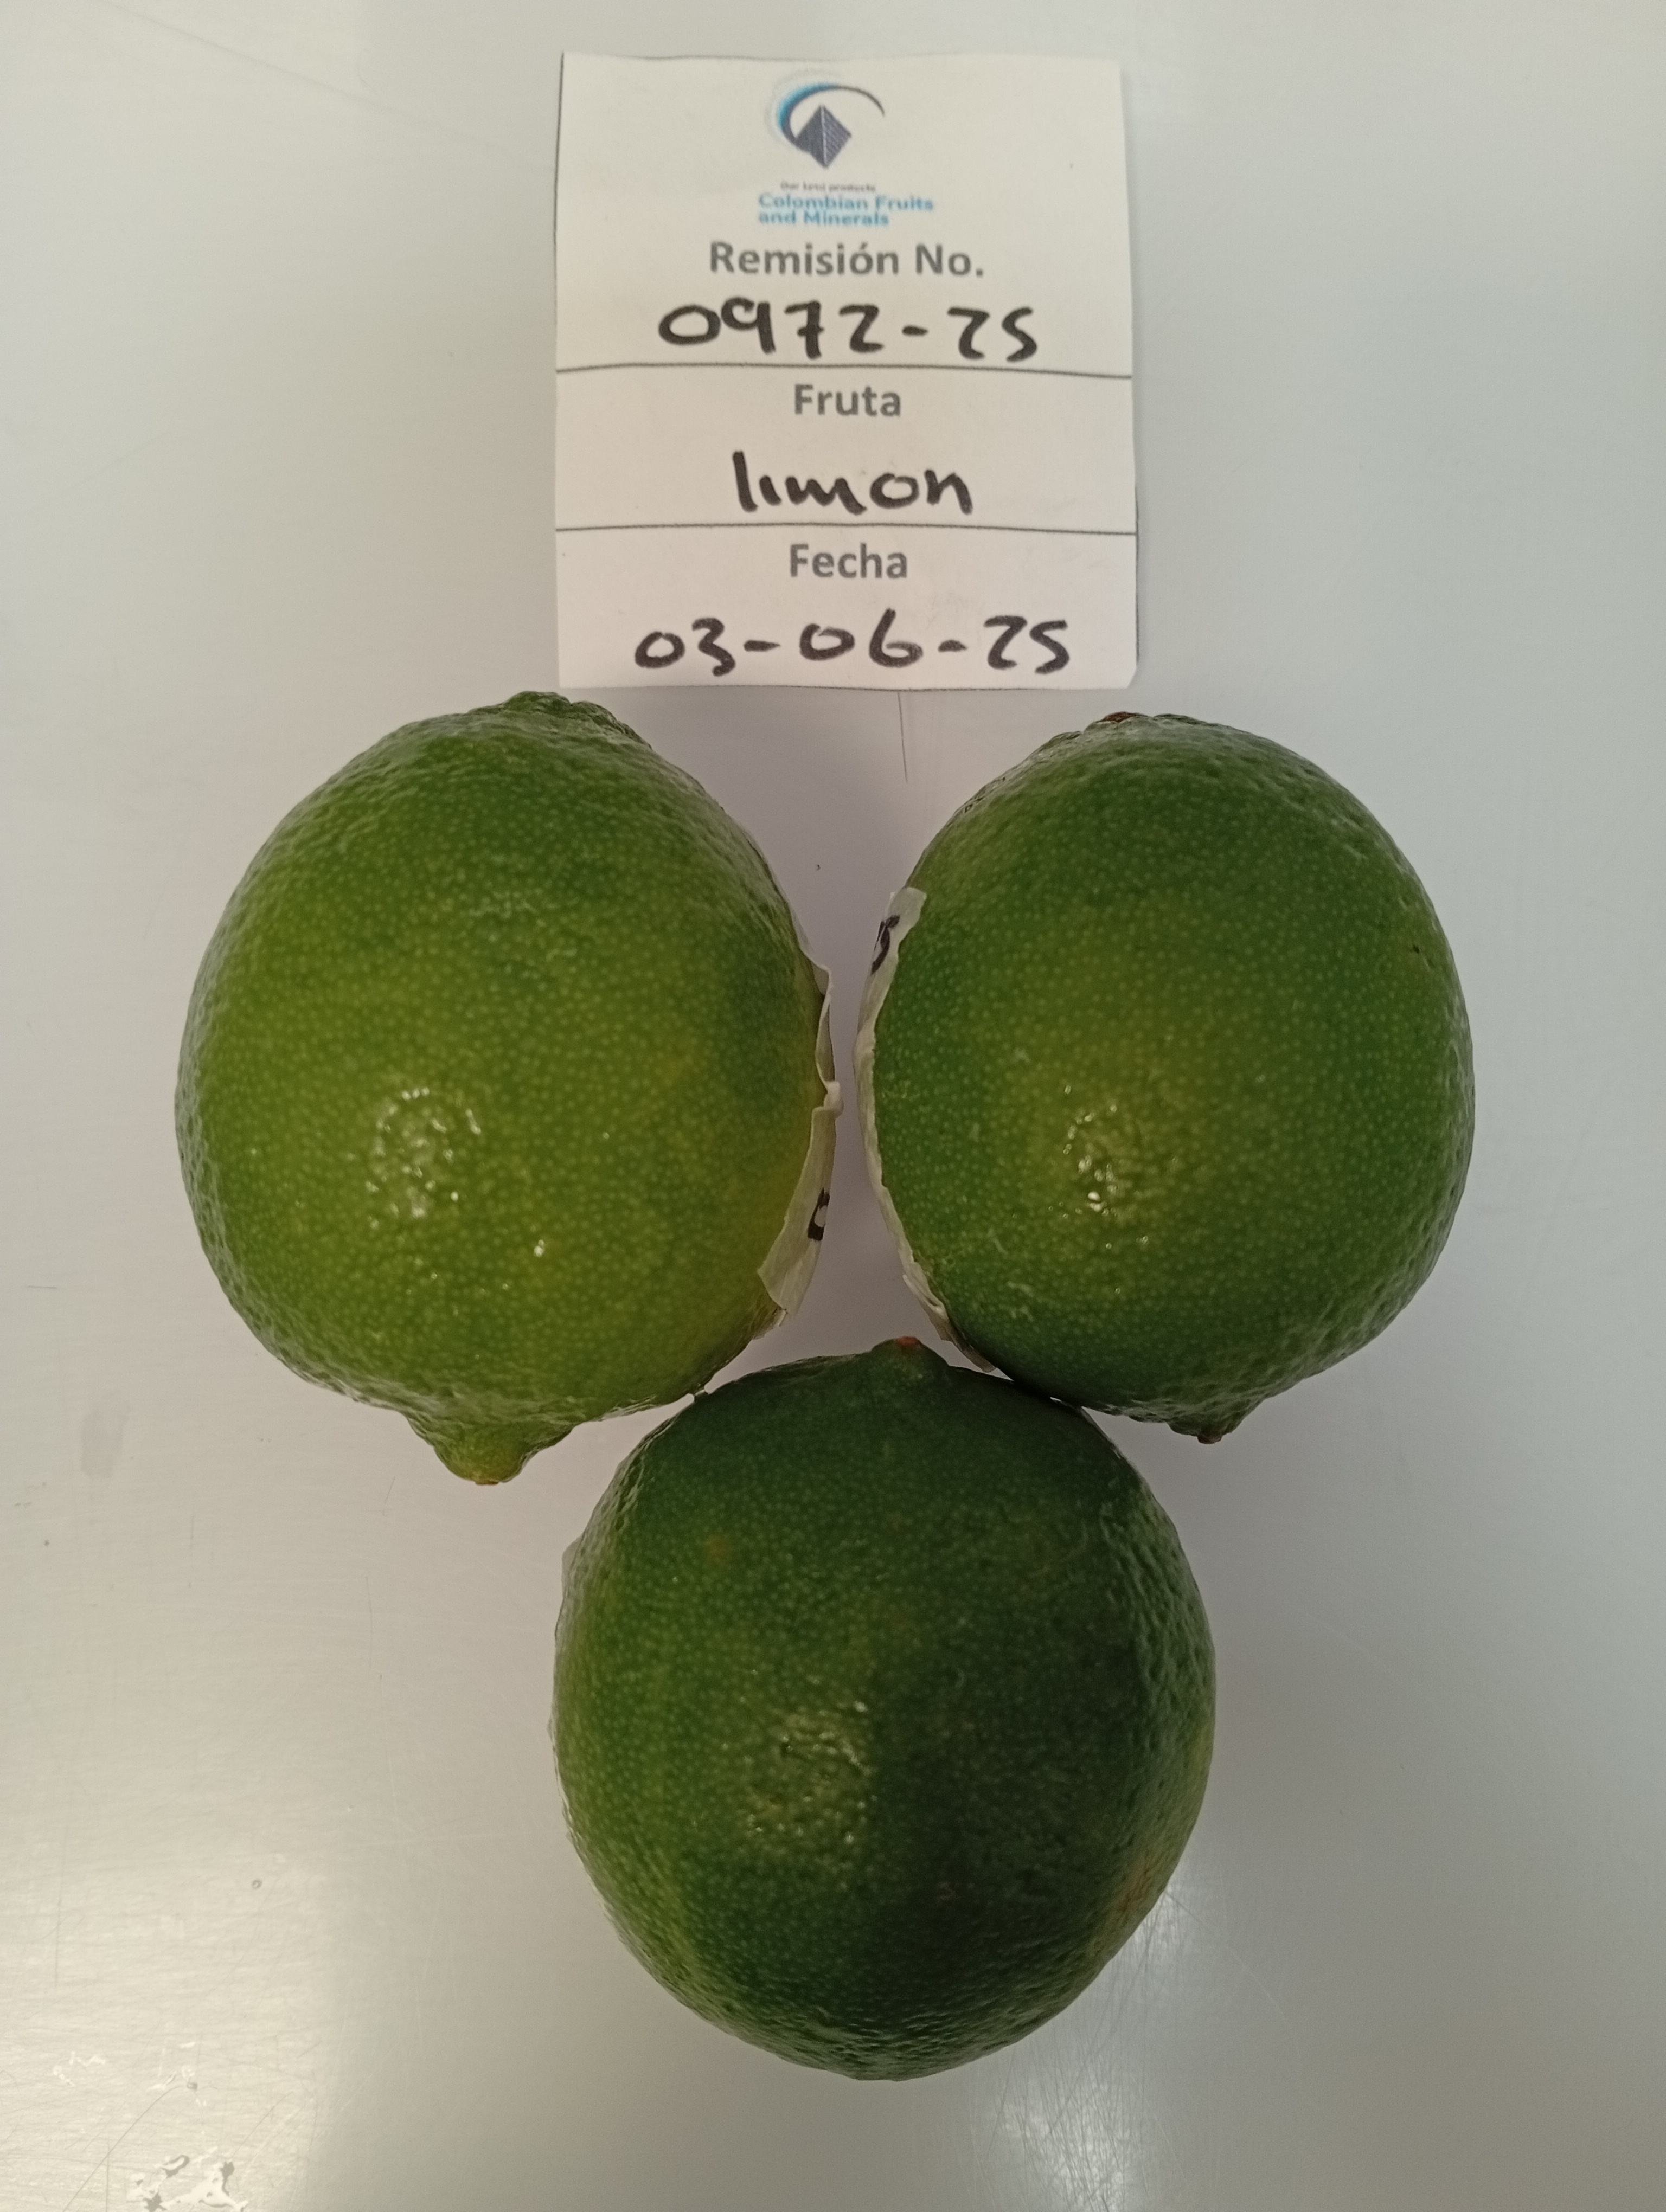 Our best products
Colombian Fruits
and Minerals
Remisión No.
0972-25
Fruta
limon
Fecha
03-06-25